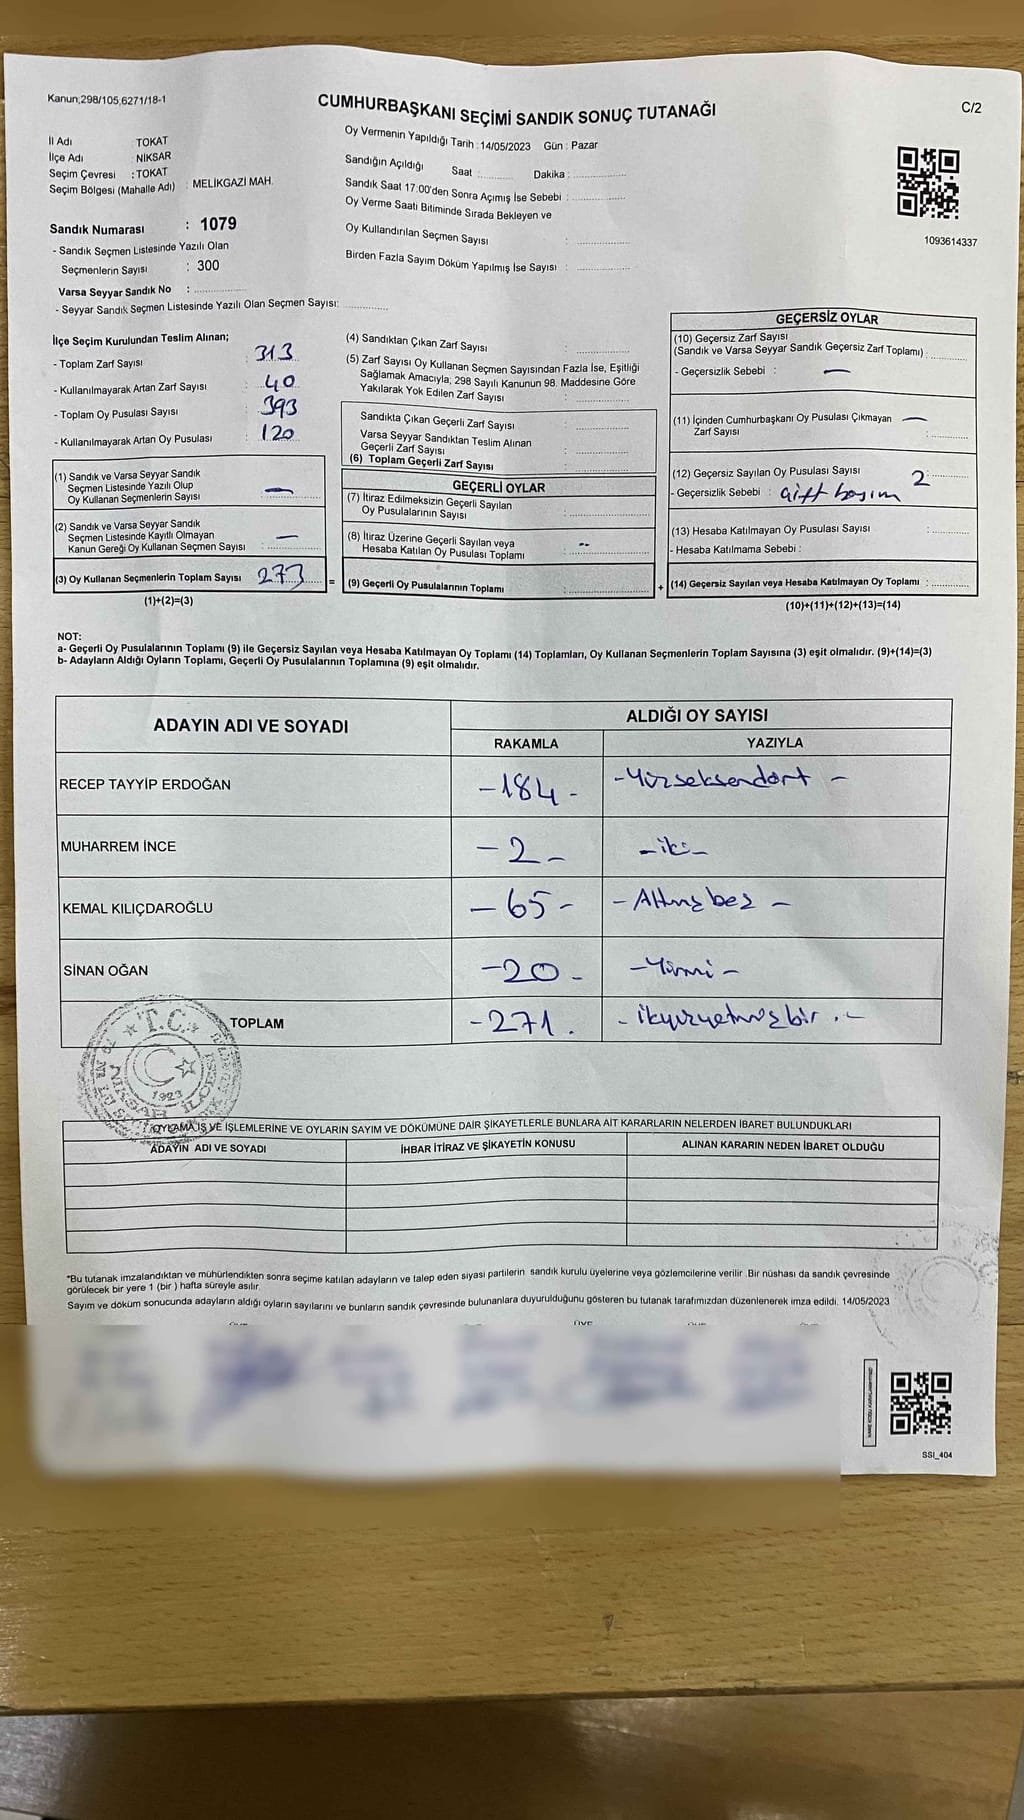 Kanun,298/105,6271/18-1
CUMHURBAŞKANI SEÇİMİ SANDIK SONUÇ TUTANAĞI
C/2
İl Adı TOKAT
İlçe Adı NİKSAR
Seçim Çevresi : TOKAT
Seçim Bölgesi (Mahalle Adı) : MELİKGAZİ MAH.
Oy Vermenin Yapıldığı Tarih : 14/05/2023 Gün : Pazar
Sandığın Açıldığı Saat : Dakika :
Sandık Saat 17:00'den Sonra Açımış İse Sebebi :
Oy Verme Saati Bitiminde Sırada Bekleyen ve
Oy Kullandırılan Seçmen Sayısı :
Birden Fazla Sayım Döküm Yapılmış İse Sayısı :
1093614337
Sandık Numarası : 1079
- Sandık Seçmen Listesinde Yazılı Olan
Seçmenlerin Sayısı : 300
Varsa Seyyar Sandık No :
- Seyyar Sandık Seçmen Listesinde Yazılı Olan Seçmen Sayısı:
İlçe Seçim Kurulundan Teslim Alınan;
- Toplam Zarf Sayısı : 313
- Kullanılmayarak Artan Zarf Sayısı : 40
- Toplam Oy Pusulası Sayısı : 393
- Kullanılmayarak Artan Oy Pusulası : 120
(1) Sandık ve Varsa Seyyar Sandık
Seçmen Listesinde Yazılı Olup
Oy Kullanan Seçmenlerin Sayısı : —
(2) Sandık ve Varsa Seyyar Sandık
Seçmen Listesinde Kayıtlı Olmayan
Kanun Gereği Oy Kullanan Seçmen Sayısı : —
(3) Oy Kullanan Seçmenlerin Toplam Sayısı 273
(1)+(2)=(3)
=
(4) Sandıktan Çıkan Zarf Sayısı :
(5) Zarf Sayısı Oy Kullanan Seçmen Sayısından Fazla İse, Eşitliği
Sağlamak Amacıyla; 298 Sayılı Kanunun 98. Maddesine Göre
Yakılarak Yok Edilen Zarf Sayısı :
Sandıkta Çıkan Geçerli Zarf Sayısı :
Varsa Seyyar Sandıktan Teslim Alınan
Geçerli Zarf Sayısı :
(6) Toplam Geçerli Zarf Sayısı :
GEÇERLİ OYLAR
(7) İtiraz Edilmeksizin Geçerli Sayılan
Oy Pusulalarının Sayısı :
(8) İtiraz Üzerine Geçerli Sayılan veya
Hesaba Katılan Oy Pusulası Toplamı : --
(9) Geçerli Oy Pusulalarının Toplamı :
+
GEÇERSİZ OYLAR
(10) Geçersiz Zarf Sayısı
(Sandık ve Varsa Seyyar Sandık Geçersiz Zarf Toplamı) :
- Geçersizlik Sebebi : —
(11) İçinden Cumhurbaşkanı Oy Pusulası Çıkmayan —
Zarf Sayısı :
(12) Geçersiz Sayılan Oy Pusulası Sayısı 2
- Geçersizlik Sebebi : Çift basım
(13) Hesaba Katılmayan Oy Pusulası Sayısı :
- Hesaba Katılmama Sebebi :
(14) Geçersiz Sayılan veya Hesaba Katılmayan Oy Toplamı :
(10)+(11)+(12)+(13)=(14)
NOT:
a- Geçerli Oy Pusulalarının Toplamı (9) ile Geçersiz Sayılan veya Hesaba Katılmayan Oy Toplamı (14) Toplamları, Oy Kullanan Seçmenlerin Toplam Sayısına (3) eşit olmalıdır. (9)+(14)=(3)
b- Adayların Aldığı Oyların Toplamı, Geçerli Oy Pusulalarının Toplamına (9) eşit olmalıdır.
ADAYIN ADI VE SOYADI ALDIĞI OY SAYISI
RAKAMLA YAZIYLA
RECEP TAYYİP ERDOĞAN -184- -Yüzseksendört-
MUHARREM İNCE -2- -iki-
KEMAL KILIÇDAROĞLU -65- -Altmışbeş-
SİNAN OĞAN -20- -Yirmi-
TOPLAM -271. -ikiyüzyetmişbir.-
T.C.
1923
NİKSAR İLÇESİ
OYLAMA İŞ VE İŞLEMLERİNE VE OYLARIN SAYIM VE DÖKÜMÜNE DAİR ŞİKAYETLERLE BUNLARA AİT KARARLARIN NELERDEN İBARET BULUNDUKLARI
ADAYIN ADI VE SOYADI İHBAR İTİRAZ VE ŞİKAYETİN KONUSU ALINAN KARARIN NEDEN İBARET OLDUĞU
*Bu tutanak imzalandıktan ve mühürlendikten sonra seçime katılan adayların ve talep eden siyasi partilerin sandık kurulu üyelerine veya gözlemcilerine verilir .Bir nüshası da sandık çevresinde
görülecek bir yere 1 (bir ) hafta süreyle asılır.
Sayım ve döküm sonucunda adayların aldığı oyların sayılarını ve bunların sandık çevresinde bulunanlara duyurulduğunu gösteren bu tutanak tarafımızdan düzenlenerek imza edildi. 14/05/2023
ÜYE
SSI_404